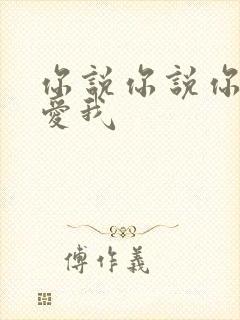 你說你說你
愛我
傅作義